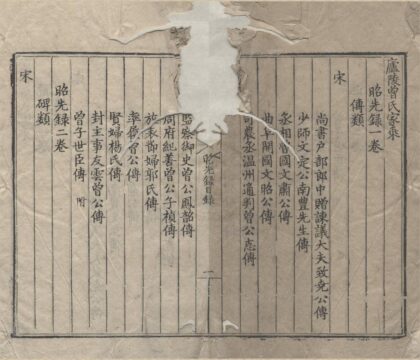 廬陵曾氏家乘
昭先錄一卷
傳類
宋
尚書户部郎中贈諫議大夫致堯公傳
少師文定公南豐先生傳
丞相魯國文肅公傳
曲阜開國文昭公傳
司農丞温州通判曾公志傳
昭先錄目錄
一
監察御史曾公鳳韶傳
周府紀善曾公子禎傳
旌表節婦郭氏傳
率菴曾公傳
賢婦楊氏傳
封主事友雲曾公傳
曾子世臣傳 附
昭先錄二卷
碑類
宋